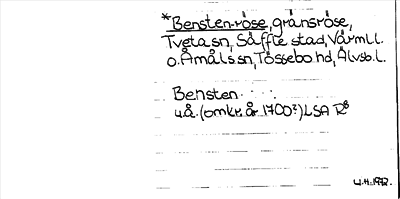 *Bensten-röse, gränsröse,
Tveta sn, Säffle stad, Värml l.
o. Åmåls sn, Tössebo hd, Älvsb. l.
Bensten
u.å. (omkr. år 1700?) LSA R8
4.11.1972.